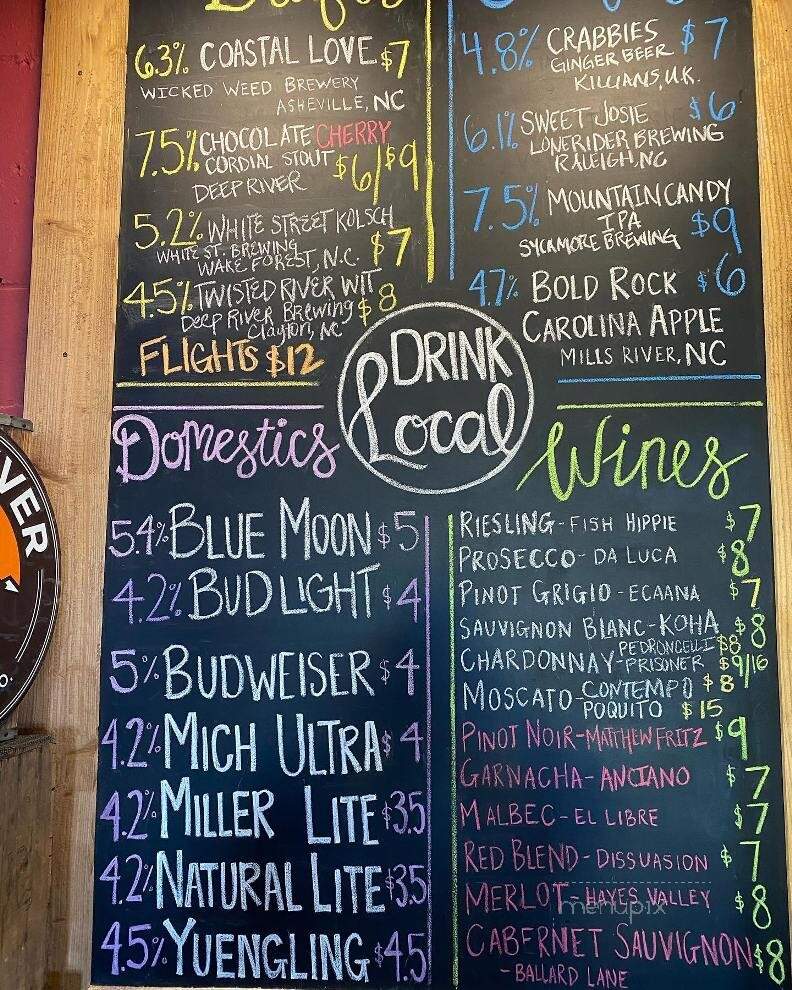 6.3% COASTAL LOVE $7
WICKED WEED BREWERY
ASHEVILLE, NC
7.5% CHOCOLATE CHERRY
CORDIAL STOUT $6/$9
DEEP RIVER
5.2% WHITE STREET KOLSCH
WHITE ST. BREWING $7
WAKE FOREST, N.C.
4.5% TWISTED RIVER WIT $8
Deep River Brewing
Clayton, NC
FLIGHTS $12
4.8% CRABBIES $7
GINGER BEER
KILLIANS, U.K.
6.1% SWEET JOSIE $6
LONERIDER BREWING
RALEIGH, NC
7.5% MOUNTAIN CANDY
IPA $9
SYCAMORE BREWING
4.7% BOLD ROCK $6
CAROLINA APPLE
MILLS RIVER, NC
DRINK
Local
Domestics
5.4% BLUE MOON $5
4.2% BUD LIGHT $4
5% BUDWEISER $4
4.2% MICH ULTRA $4
4.2% MILLER LITE $3.5
4.2% NATURAL LITE $3.5
4.5% YUENGLING $4.5
Wines
RIESLING - FISH HIPPIE $7
PROSECCO - DA LUCA $8
PINOT GRIGIO - ECAANA $7
SAUVIGNON BLANC - KOHA $8
CHARDONNAY - PEDRONCELLI $8
PRISONER $9/16
MOSCATO - CONTEMPO $8
POQUITO $15
PINOT NOIR - MATTHEW FRITZ $9
GARNACHA - ANCIANO $7
MALBEC - EL LIBRE $7
RED BLEND - DISSUASION $7
MERLOT - HAYES VALLEY $8
CABERNET SAUVIGNON $8
- BALLARD LANE
menupix
VER